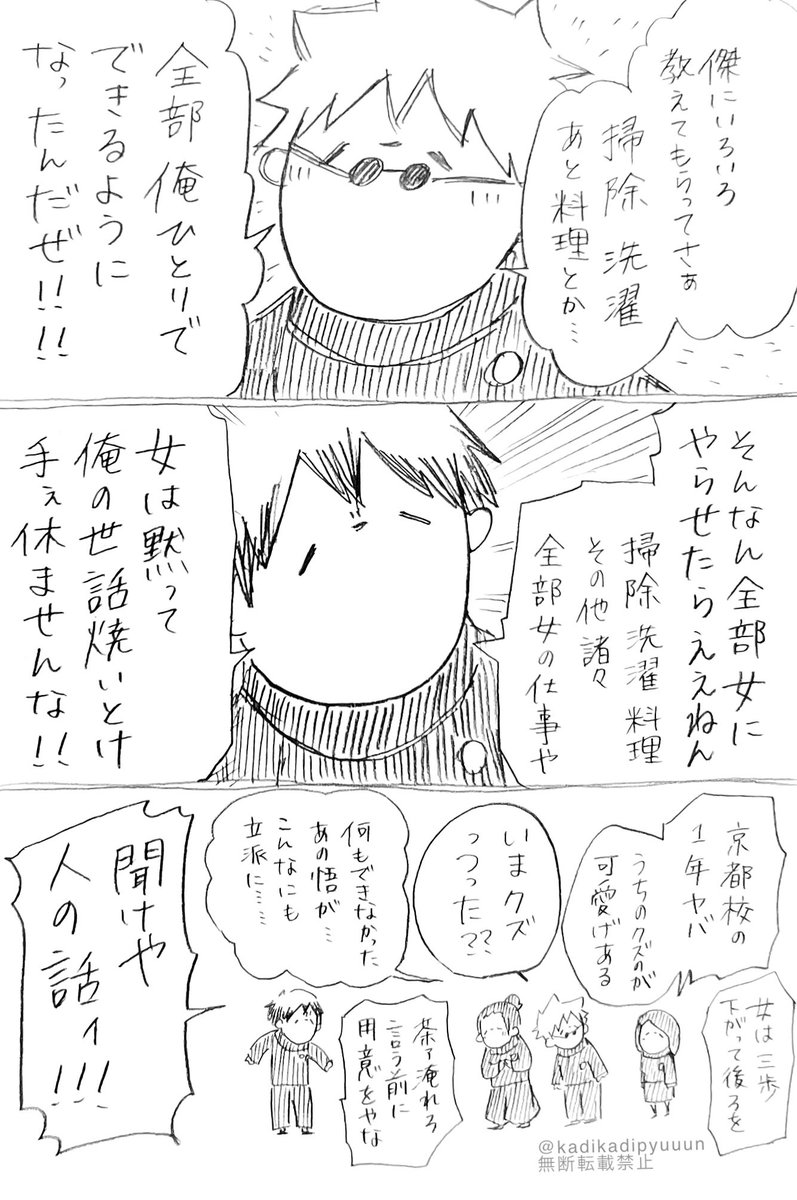 傑にいろいろ
教えてもらってさぁ
掃除 洗濯
あと料理とか…
全部 俺ひとりで
できるように
なったんだぜ!!!!
そんなん全部女に
やらせたらええねん
掃除 洗濯 料理
その他 諸々
全部女の仕事や
女は黙って
俺の世話焼いとけ
手ぇ休ませんな!!
京都校の
1年ヤバ
うちのクズのが
可愛げある
いまクズ
っつった??
何もできなかった
あの悟が…
こんなにも
立派に……
女は三歩
下がって後ろを
茶ァ淹れろ
言う前に
用意をやな
聞けや
人の話ィ!!!
@kadikadipyuuun
無断転載禁止